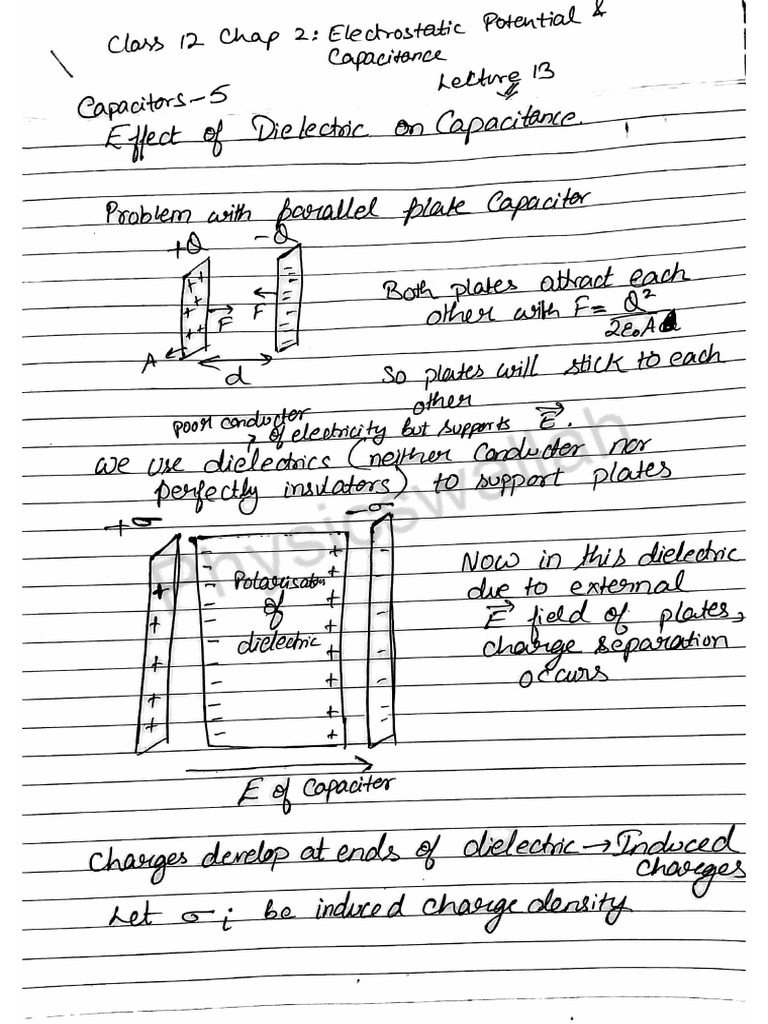 Class 12 Chap 2: Electrostatic Potential &
Capacitance
Lecture 13
Capacitors-5
Effect of Dielectric on Capacitance.
Problem with parallel plate Capacitor
+Q -Q
F F
A
d
Both plates attract each
other with F = Q²/2ε₀A
So plates will stick to each
other
poor conductor
of electricity but supports E⃗.
We use dielectrics (neither Conductor nor
perfectly insulators) to support plates
+σ -σ
Polarisation
of
dielectric
Now in this dielectric
due to external
E⃗ field of plates,
charge separation
occurs
E of Capacitor
Charges develop at ends of dielectric → Induced
charges
Let σi be induced charge density
Physicswallah